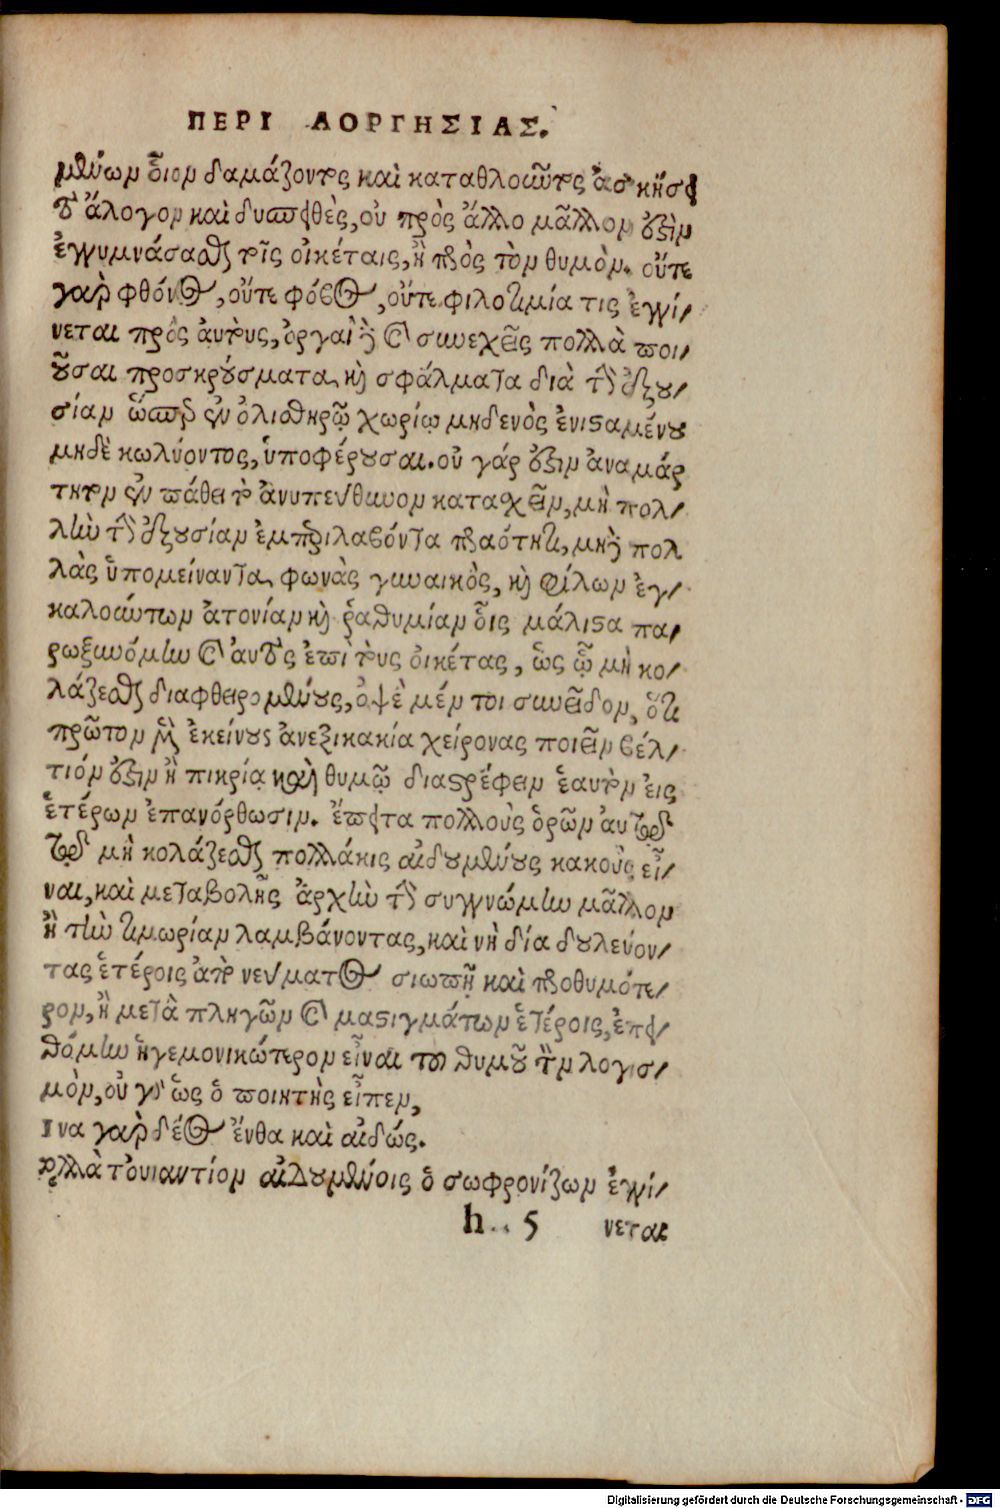 ΠΕΡΙ ΑΟΡΓΗΣΙΑΣ.
μένων οἷον δαμάζοντες καὶ καταθλοῦντες ἀσκήσει
τὸ ἄλογον καὶ δυσπειθὲς, οὐ πρὸς ἄλλο μᾶλλον ἔξεστιν
ἐγγυμνάσασθαι τοῖς οἰκέταις, ἢ πρὸς τὸν θυμὸν. οὔτε
γὰρ φθόνος, οὔτε φόβος, οὔτε φιλοτιμία τις ἐγγί/
νεται πρὸς αὐτοὺς, ὀργαὶ δὲ καὶ συνεχεῖς πολλὰ ποι/
οῦσαι προσκρούσματα καὶ σφάλματα διὰ τὴν ἐξου/
σίαν ὥσπερ ἐν ὀλισθηρῷ χωρίῳ μηδενὸς ἐνισταμένου
μηδὲ κωλύοντος, ὑποφέρουσαι. οὐ γάρ ἔστιν ἀναμάρ
τητον ἐν πάθει τὸ ἀνυπεύθυνον κατασχεῖν, μὴ πολ/
λῇ τὴν ἐξουσίαν ἐμπεριλαβόντα πραότητι, μηδὲ πολ
λὰς ὑπομείναντα φωνὰς γυναικὸς, καὶ φίλων ἐγ/
καλούντων ἀτονίαν καὶ ῥαθυμίαν οἷς μάλιστα πα/
ρωξυνόμην καὶ αὐτὸς ἐπὶ τοὺς οἰκέτας, ὡς τῷ μὴ κο/
λάζεσθαι διαφθειρομένους, ὀψὲ μέν τοι συνεῖδον, ὅτι
πρῶτον μὲν ἐκείνους ἀνεξικακία χείρονας ποιεῖν βέλ/
τιόν ἔστιν ἢ πικρίᾳ καὶ θυμῷ διαστρέφειν ἑαυτὸν εἰς
ἑτέρων ἐπανόρθωσιν. ἔπειτα πολλοὺς ὁρῶν αὐτῷ
τῷ μὴ κολάζεσθαι πολλάκις αἰδουμένους κακοὺς εἶ/
ναι, καὶ μεταβολῆς ἀρχὴν τὴν συγγνώμην μᾶλλον
ἢ τὴν τιμωρίαν λαμβάνοντας, καὶ νὴ δία δουλεύον/
τας ἑτέροις ἀπὸ νεύματος σιωπῇ καὶ προθυμότε/
ρον, ἢ μετὰ πληγῶν καὶ μαστιγμάτων ἑτέροις, ἐπει/
θόμην ἡγεμονικώτερον εἶναι τοῦ θυμοῦ τὸν λογισ/
μὸν, οὐ γὰρ ὡς ὁ ποιητὴς εἶπεν,
Ινα γὰρ δέος ἔνθα καὶ αἰδώς.
Αλλὰ τοὐναντίον αἰδουμένοις ὁ σωφρονίζων ἐγγί/
h 5 νεται
Digitalisierung gefördert durch die Deutsche Forschungsgemeinschaft - DFG